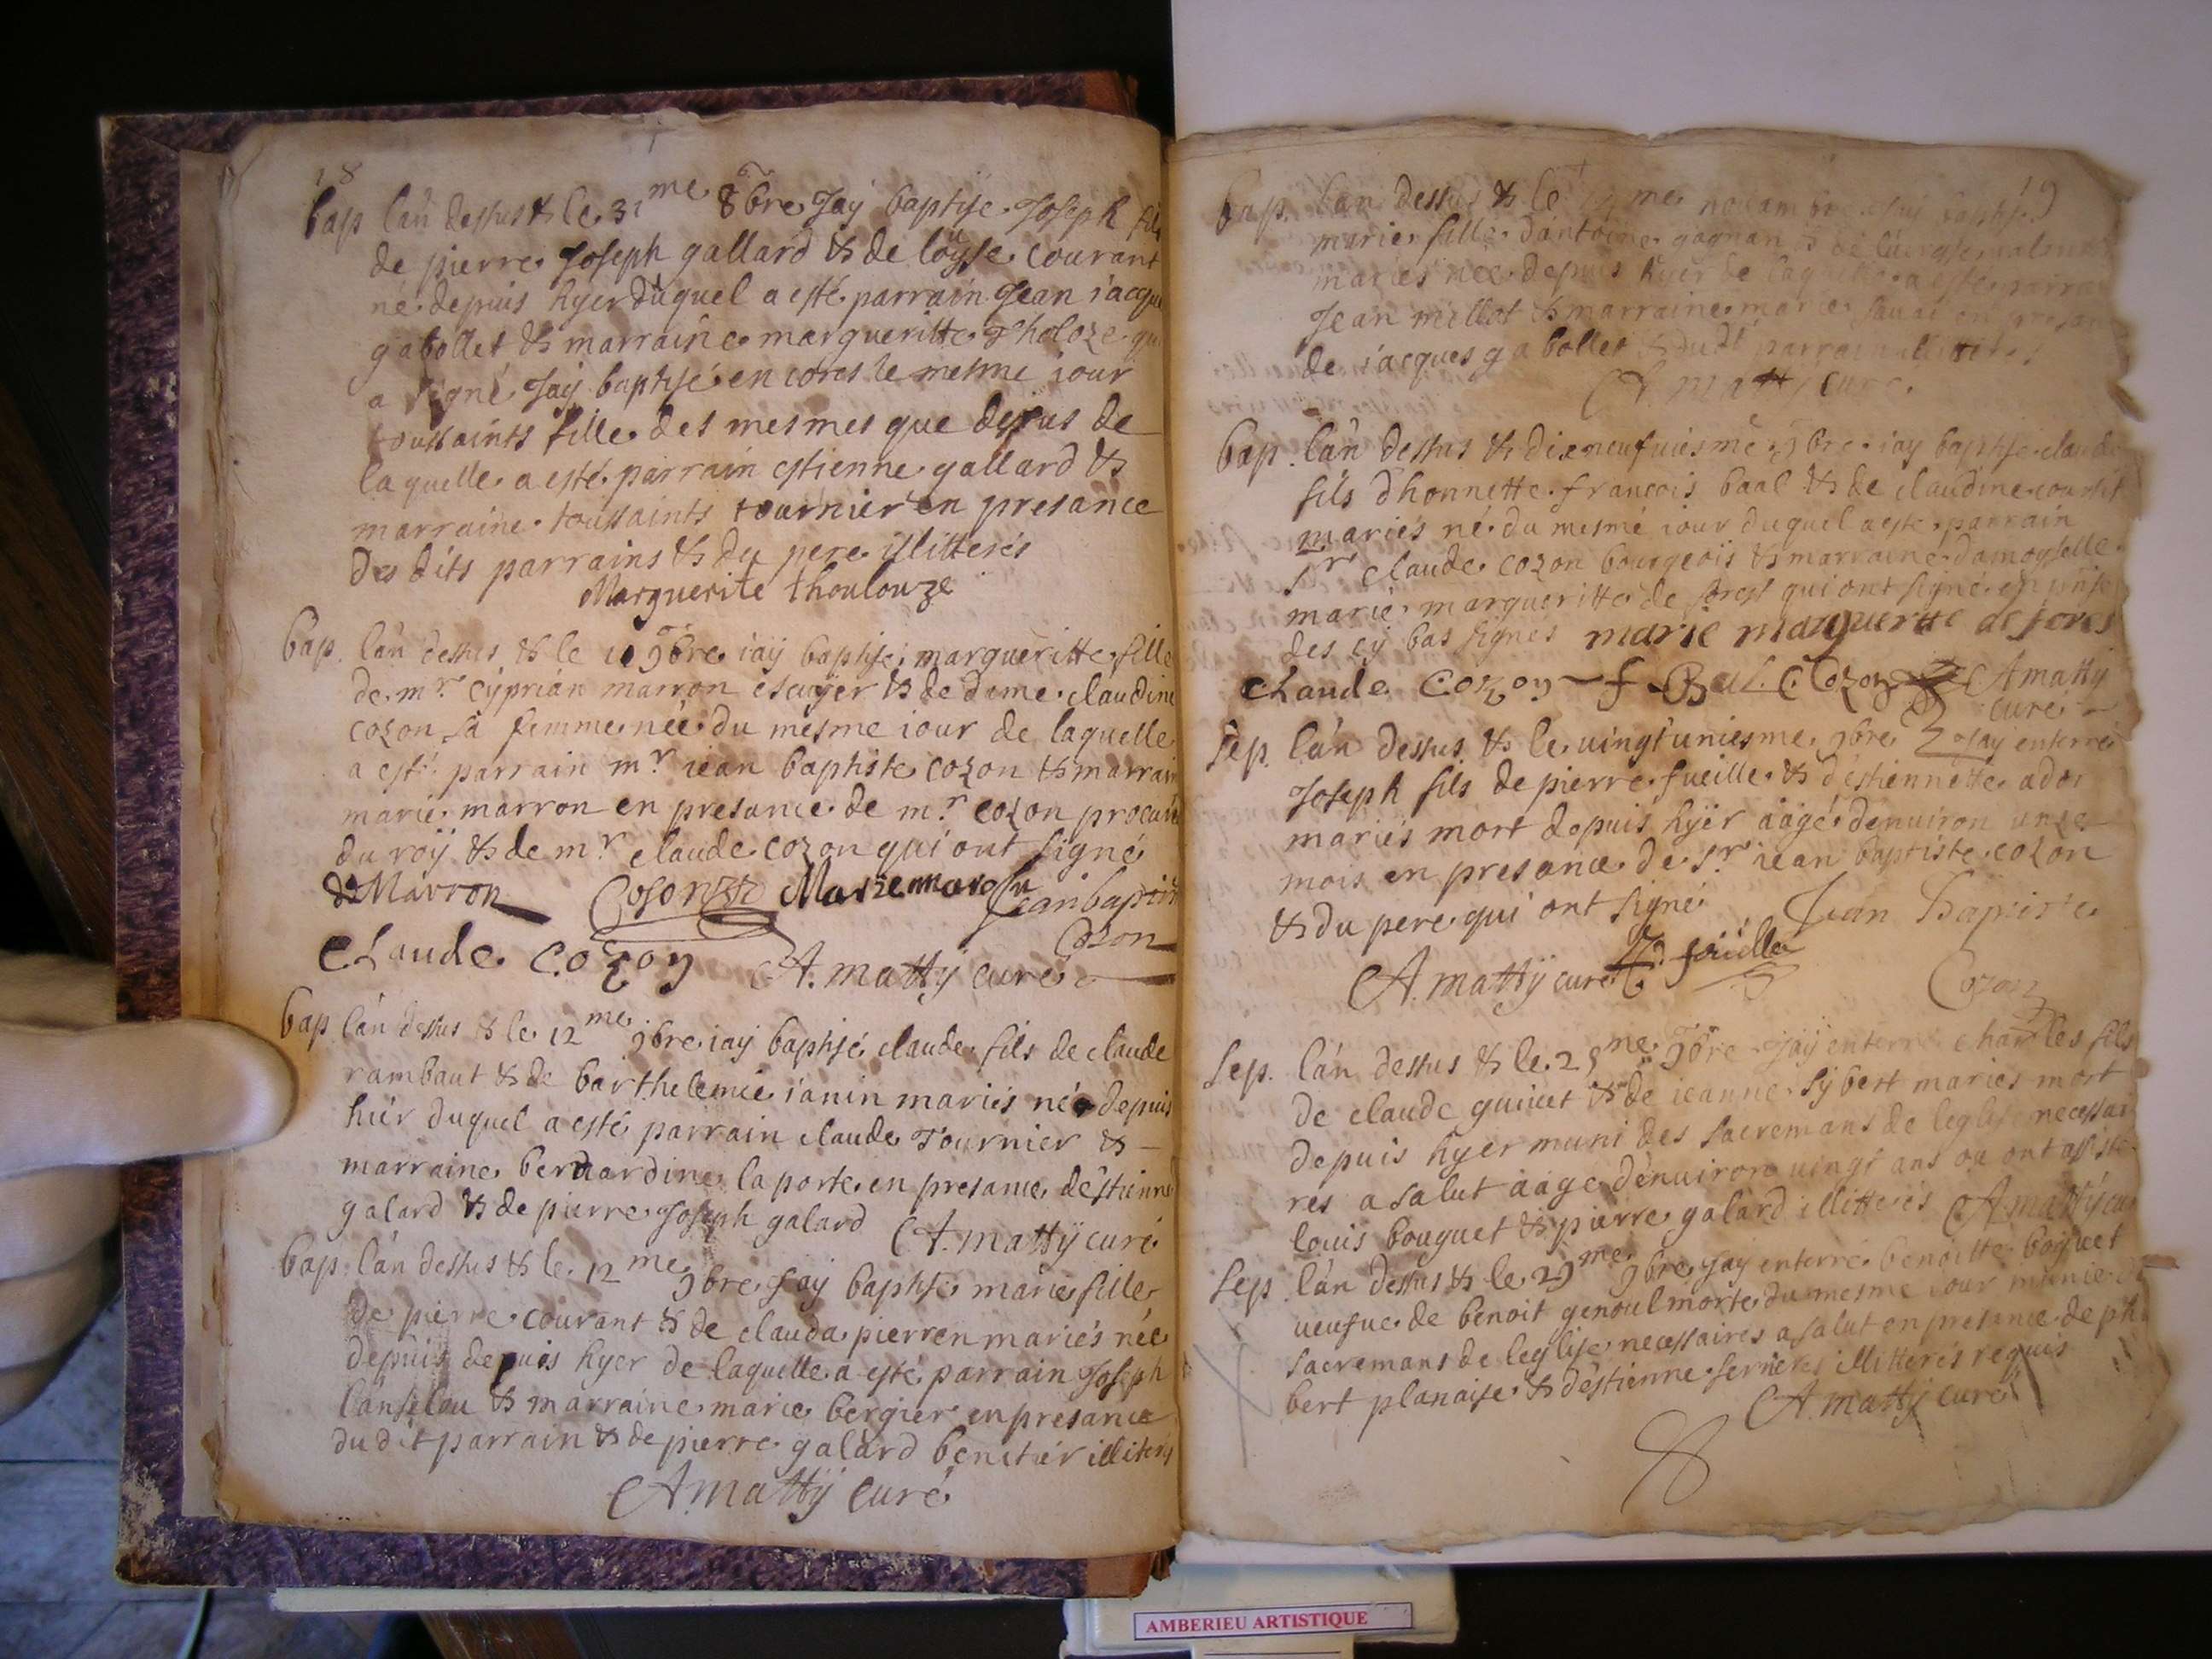 18
bap lan dessus & le 31me 8bre Jay baptise Joseph fils
de pierre Joseph gallard & de loyse courant
né depuis hyer duquel a esté parrain Jean iacque
gabollet & marraine margueritte Tholoze qui
a signé Jay baptisé encores le mesme iour
toussaints fille des mesmes que dessus de
laquelle a esté parrain estienne gallard &
marraine toussaints tournier en presance
des dits parrains & du pere illitterés
Marguerite thoulouze
bap. lan dessus & le 9bre iay baptise margueritte fille
de mr cyprian marron escuyer & de dame claudine
cozon sa femme née du mesme iour de laquelle
a esté parrain mr iean baptiste cozon & marrain
marie marron en presance de mr cozon procur
du roy & de mr claude cozon qui ont signé
de Marron Marie maron Jean baptiste
Cozon
claude cozon A. matty curé
bap lan dessus & le 12me 9bre iay baptisé claude fils de claude
rambaut & de barthelemie ianin mariés né depuis
hier duquel a esté parrain claude Tournier &
marraine bernardine la porte en presance destienne
galard & de pierre Joseph galard A. matty curé
bap. lan dessus & le 12me 9bre Jay baptise marie fille
de pierre courant & de clauda pierren mariés née
depuis depuis hyer de laquelle a esté parrain Joseph
lanselou & marraine marie bergier en presance
du dit parrain & de pierre galard benitier illiterés
A. matty curé
19
bap. lan dessus & le me nouambre iay baptise
marie fille dantoine gagnan & de
mariés née depuis hyer de laquelle a esté parrai
Jean millot & marraine marie en presan
de iacques gabollet & dudt parrain
A. matty curé
bap. lan dessus & dixneufuiesme 9bre iay baptise claude
fils dhonnette francois baal & de claudine
mariés né du mesme iour duquel a este parrain
sr claude cozon bourgeois & marraine damoyselle
marie margueritte de forest qui ont signé en
des cy bas signés marie marguerite de fores
claude cozon f Bal C Cozon A matty
curé
sep. lan dessus & le uingtuniesme 9bre Jay enterré
Joseph fils de pierre fueille & destiennette ador
mariés mort depuis hyer aagé denuiron unze
mois en presance de sr iean baptiste cozon
& du pere qui ont signé Jean Baptiste
A. matty curé foüille
Cozon
sep. lan dessus & le 25me 9bre Jay enterré charles fils
de claude guinet & de ieanne sybert mariés mort
depuis hyer muni des sacremans de leglise necessai
res a salut aage denuiron uingt ans ou ont assisté
louis bouguet & pierre galard illitterés A. matty cur
sep. lan dessus & le 29me 9bre Jay enterré benoitte boyuet
ueufue de benoit genoul morte du mesme iour munie
sacremans de leglise necessaires a salut en presance de ph
bert planaise & destienne ferrieres illitterés requis
A. matty curé
AMBERIEU ARTISTIQUE